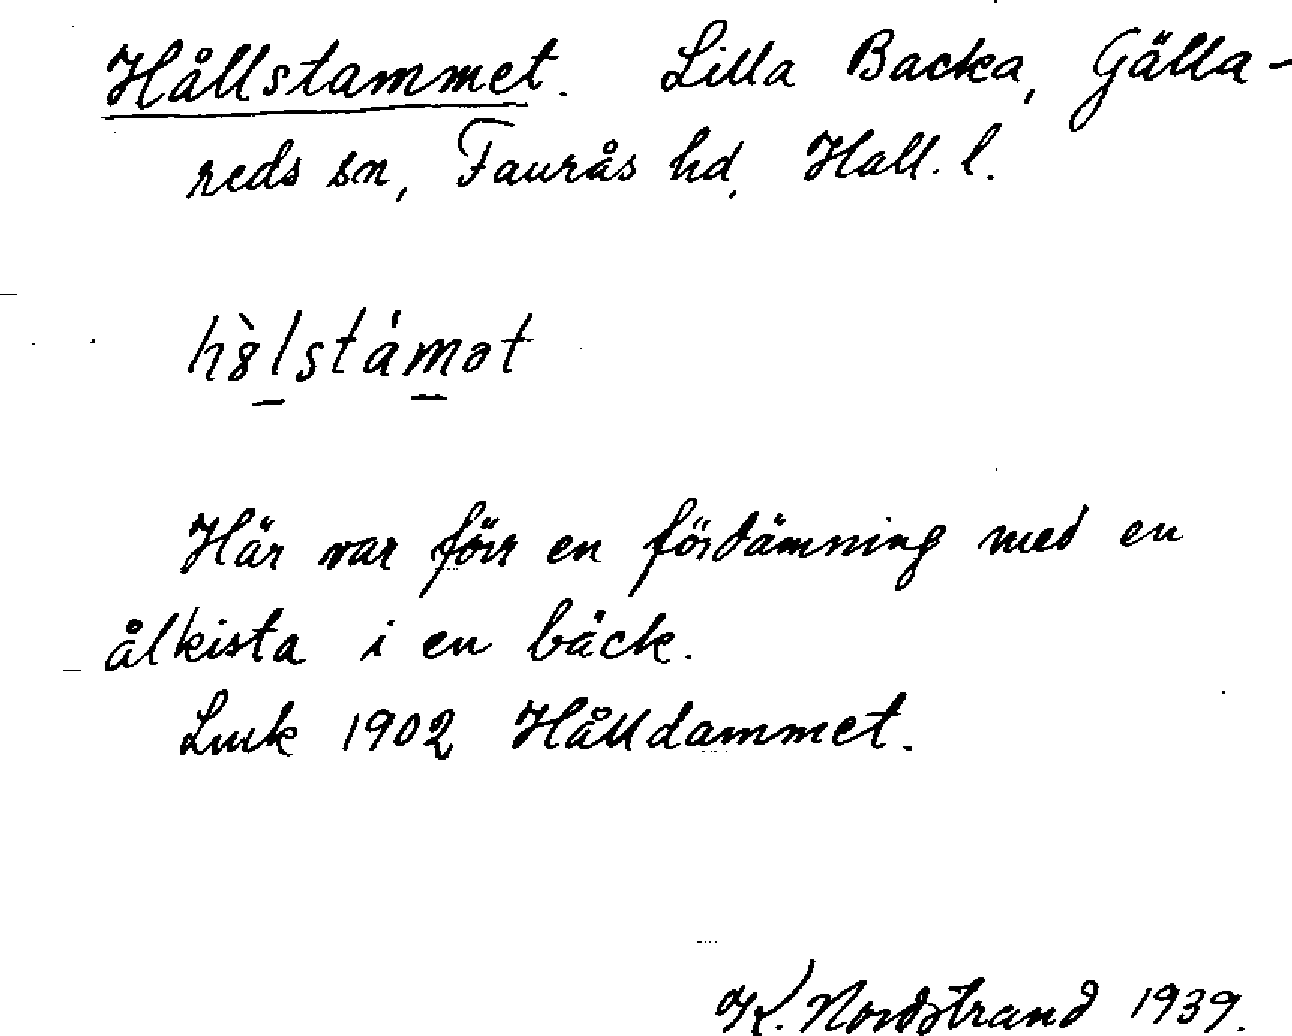 Hållstammet. Lilla Backa, Gälla-
reds sn, Faurås hd, Hall. l.
hò̤lstámət
Här var förr en fördämning med en
ålkista i en bäck.
Lmk 1902 Hålldammet.
K. Nordstrand 1939.